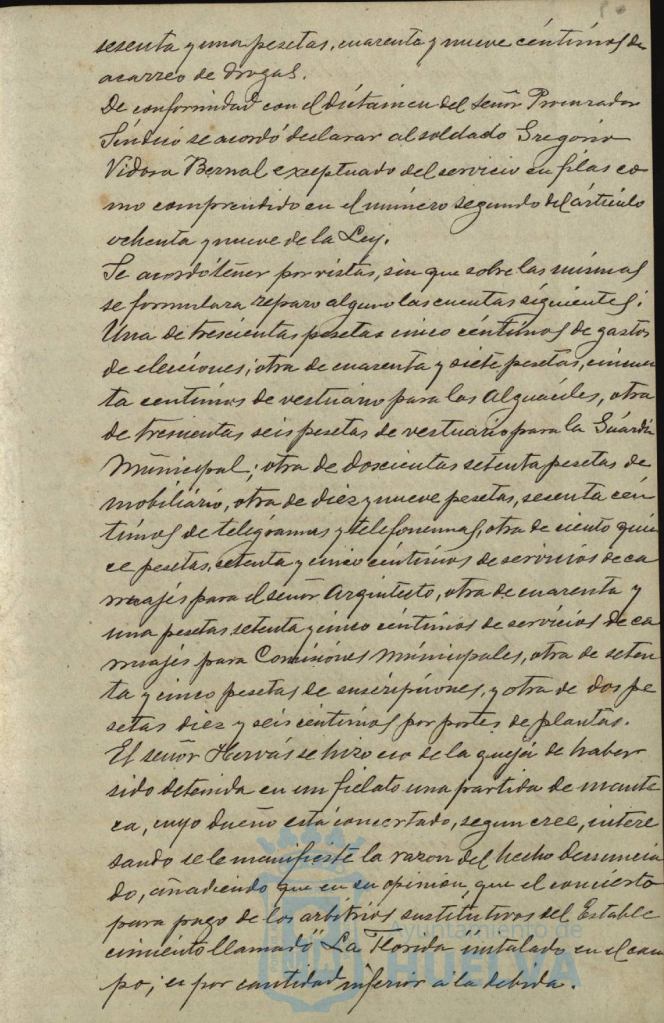 sesenta y una pesetas, cuarenta y nueve céntimos de
acarreo de drogas.
De conformidad con el dictamen del señor Procurador
Síndico se acordó declarar al soldado Gregorio
Vidosa Bernal exceptuado del servicio en filas co
mo comprendido en el número segundo del artículo
ochenta y nueve de la Ley.
Se acordó tener por vistas, sin que sobre las mismas
se formulara reparo alguno las cuentas siguientes:
Una de trescientas pesetas cinco céntimos de gastos
de elecciones; otra de cuarenta y siete pesetas, cincuen
ta centimos de vestuario para los Alguaciles, otra
de trescientas seis pesetas de vestuario para la Guardia
Municipal; otra de doscientas setenta pesetas de
mobiliario, otra de diez y nueve pesetas, sesenta cén
timos de telégramas y telefonemas, otra de ciento quin
ce pesetas, setenta y cinco céntimos de servicios de ca
rruajes para el señor Arquitecto, otra de cuarenta y
una pesetas setenta y cinco céntimos de servicios de ca
rruajes para Comisiones Municipales, otra de seten
ta y cinco pesetas de suscripciones, y otra de dos pe
setas diez y seis céntimos por portes de plantas.
El señor Hervás se hizo eco de la queja de haber
sido detenida en un fielato una partida de mante
ca, cuyo dueño está concertado, segun cree, intere
sando se le manifieste la razon del hecho denuncia
do, añadiendo que en su opinion, que el concierto
para pago de los arbitrios sustitutivos del Estable
cimiento llamado "La Florida instalado en el cam
po; es por cantidad inferior a la debida.
Ayuntamiento de
HUELVA